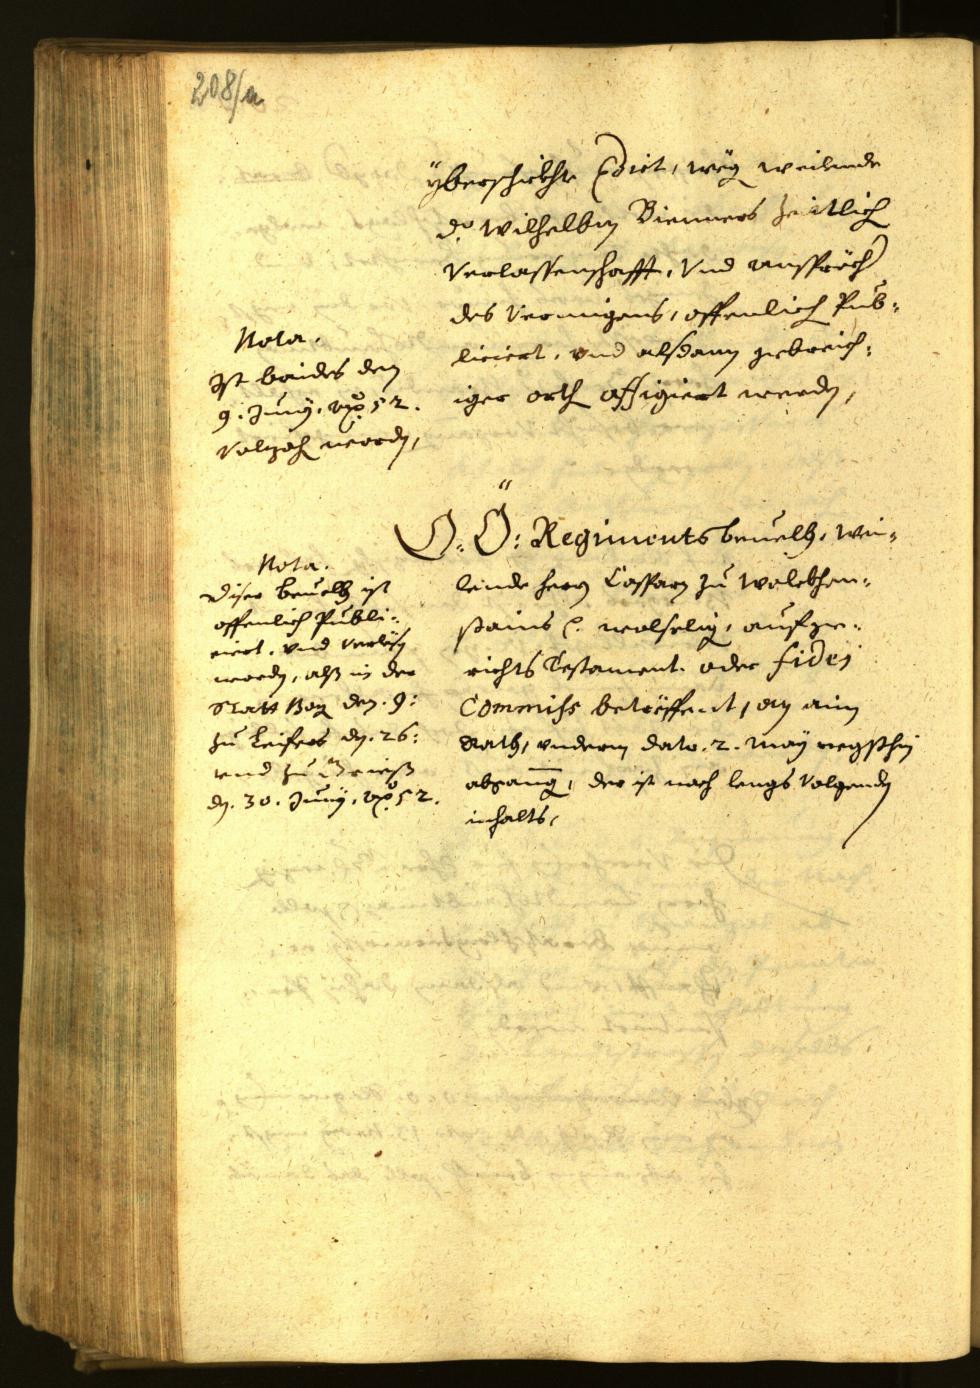 208/a
yberschickhte Edict, weg. weilende
dr. Wilhelbm Bienners zeitlich
Verlassenschafft, Vnd ansprüch
des Vermigens, offenlich Pub-
liciert, vnd alsdann gebreich-
iger orth affigiert werden,
Nota.
Ist baides den
9. Junij. ao. 52.
Volzoh. worden,
O: Ö: Regiments beuelh, wei-
lende herrn Casparn zu Wolckhen-
stains p. wolselig, aufge-
richts Testament oder fidej
Commiss betreffent, an ain
Rath, vnderm dato. 2. May negsthin
abgang, der ist nach lengs Volgenden
inhalts,
Nota.
Diser beuelh ist
offenlich Publi-
ciert, vnd verlesen
worden, alß in der
Statt Bozen den. 9:
zu Leifers den. 26:
vnd zu Grieß
den. 30. Junij. ao. 52.